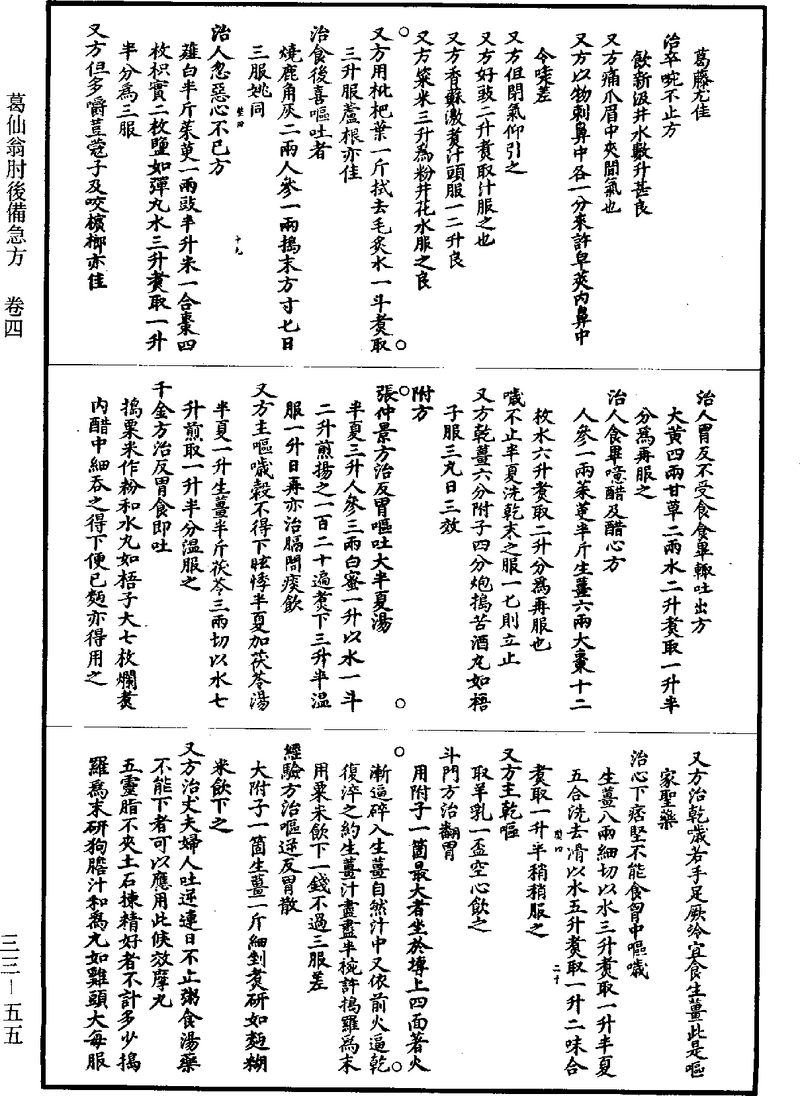 葛仙翁肘後備急方　卷四
葛藤尤佳
治卒啘不止方
飲新汲井水數升甚良
又方痛爪眉中夾間氣也
又方以物刺鼻中各一分來許皂莢內鼻中
令嚏差
又方但閉氣仰引之
又方好豉二升煮取汁服之也
又方香蘇濃煮汁頓服一二升良
又方粢米三升為粉井花水服之良
又方用枇杷葉一斤拭去毛炙水一斗煮取
三升服蘆根亦佳
治食後喜嘔吐者
燒鹿角灰二兩人參一兩搗末方寸匕日
三服姚同
治人忽惡心不已方
薤白半斤茱萸一兩豉半升米一合棗四
枚枳實二枚鹽如彈丸水三升煮取一升
半分為三服
又方但多嚼荳蔻子及咬檳榔亦佳
治人胃反不受食食畢輒吐出方
大黃四兩甘草二兩水二升煮取一升半
分為再服之
治人食畢噫醋及醋心方
人參一兩茱萸半斤生薑六兩大棗十二
枚水六升煮取二升分為再服也
噦不止半夏洗乾末之服一匕則立止
又方乾薑六分附子四分炮搗苦酒丸如梧
子服三丸日三效
附方
張仲景方治反胃嘔吐大半夏湯
半夏三升人參三兩白蜜一升以水一斗
二升煎揚之一百二十遍煮下三升半溫
服一升日再亦治膈間痰飲
又方主嘔噦穀不得下眩悸半夏加茯苓湯
半夏一升生薑半斤茯苓三兩切以水七
升煎取一升半分溫服之
千金方治反胃食即吐
搗粟米作粉和水丸如梧子大七枚爛煮
內醋中細吞之得下便已麪亦得用之
又方治乾噦若手足厥冷宜食生薑此是嘔
家聖藥
治心下痞堅不能食胷中嘔噦
生薑八兩細切以水三升煮取一升半夏
五合洗去滑以水五升煮取一升二味合
煮取一升半稍稍服之
又方主乾嘔
取羊乳一盃空心飲之
斗門方治翻胃
用附子一箇最大者坐於塼上四面著火
漸逼碎入生薑自然汁中又依前火逼乾
復淬之約生薑汁盡盡半椀許搗羅為末
用粟米飲下一錢不過三服差
經驗方治嘔逆反胃散
大附子一箇生薑一斤細剉煮研如麪糊
米飲下之
又方治丈夫婦人吐逆連日不止粥食湯藥
不能下者可以應用此候效摩丸
五靈脂不夾土石揀精好者不計多少搗
羅為末研狗膽汁和為丸如雞頭大每服
三三－五五